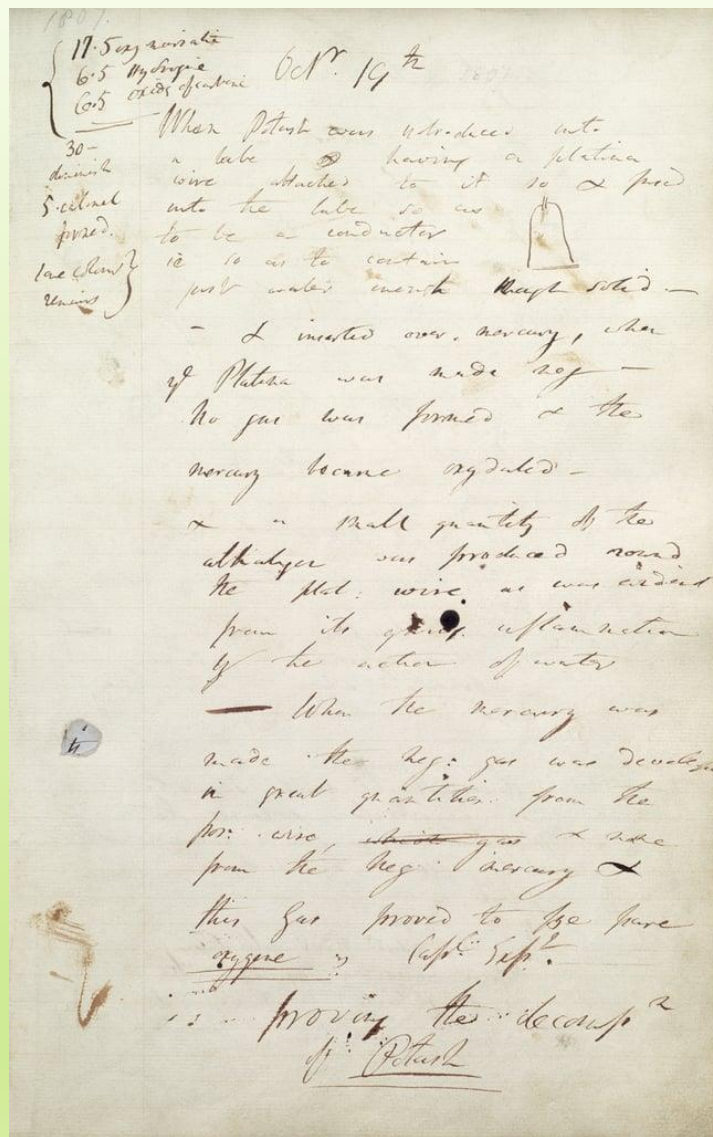 1807.
17.5 oxymuriatic
6.5 Hydrogene
6.5 oxide of carbone
30 —
diminish
5. colonel
formed.
remains
Octr. 19th
When Potash was introduced into
a tube having a platina
wire attached to it so & fused
into the tube so as
to be a conductor
ie so as to contain
just water enough though solid —
— & inserted over mercury, when
ye Platina was made neg —
No gas was formed & the
mercury became oxydated —
& a small quantity of the
alkaligen was produced round
the plat: wire as was evident
from its quick inflammation
by the action of water
— When the mercury was
made the neg: gas was developed
in great quantities from the
pos: wire, which gas & none
from the neg: mercury &
this gas proved to be pure
oxygene Capl. Expt.
proving the decompn
of Potash